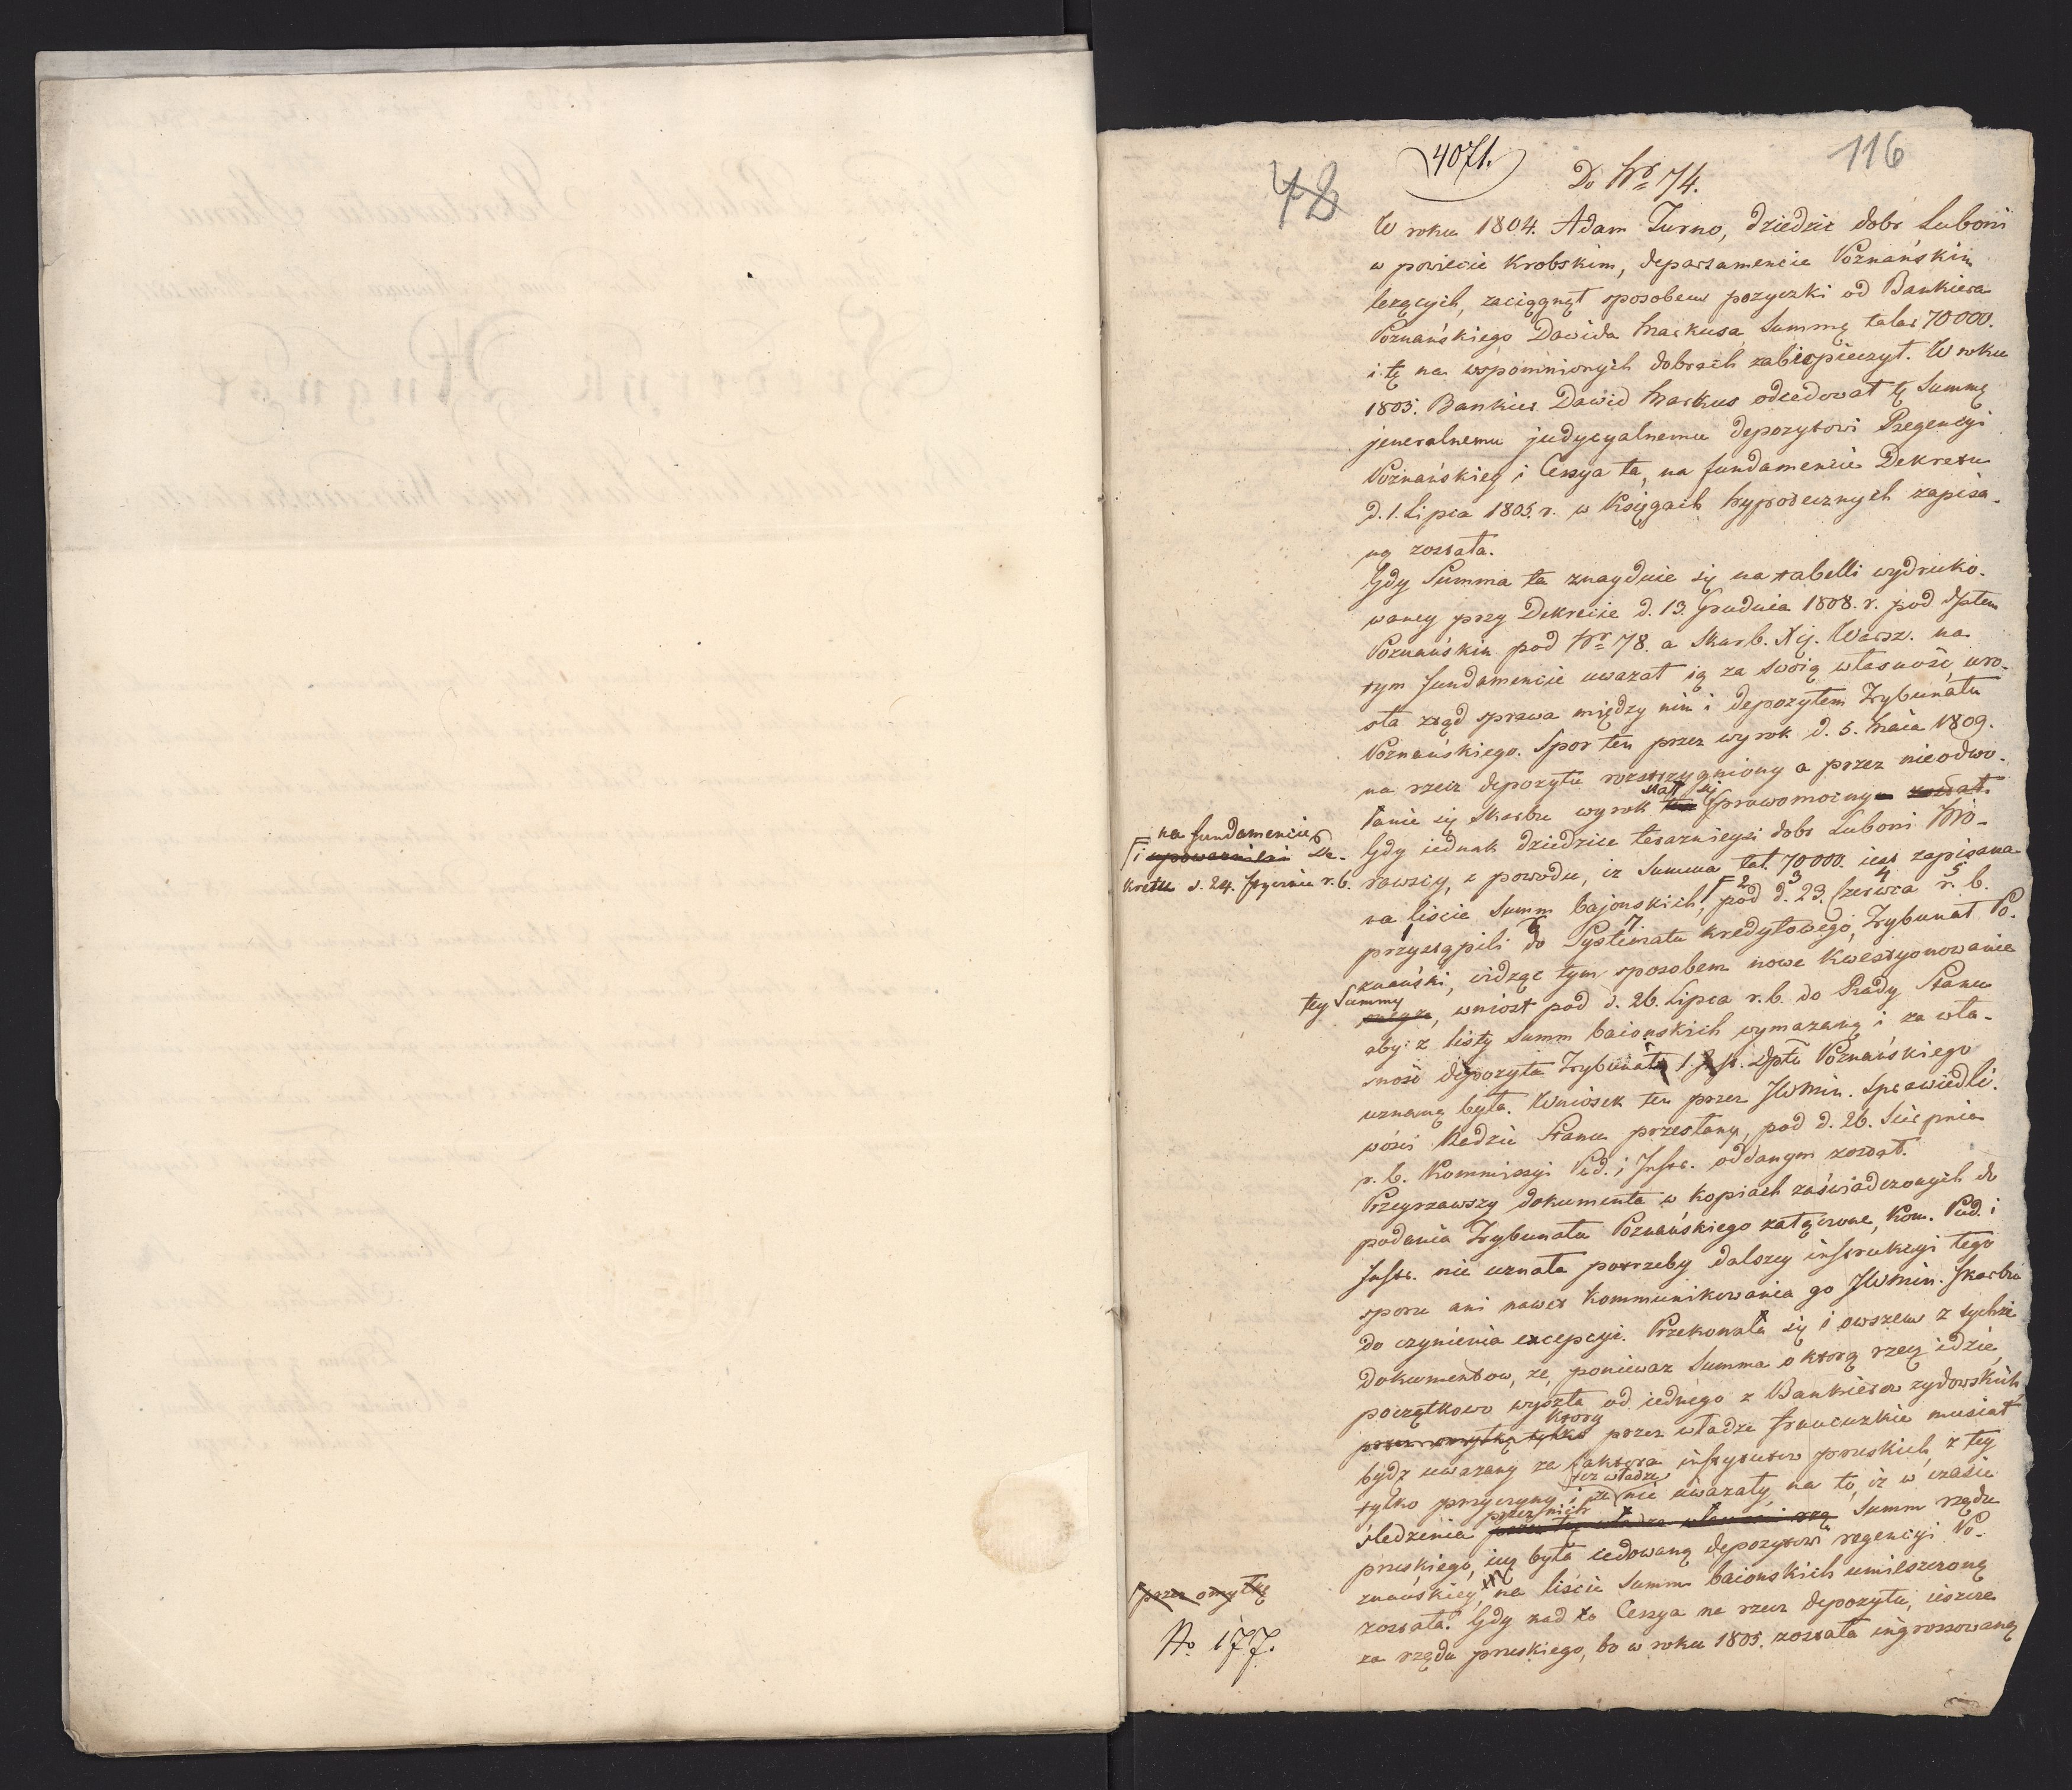 4071.
116
48
Do Nro 74.
W roku 1804. Adam Turno, dziedzic dobr Luboni
w powiecie Krobskim, departamencie Poznańskim
leżących, zaciągnął sposobem pożyczki od Bankiera
Poznańskiego Dawida Markusa Summę talar 70000.
i tę na wspomnionych dobrach zabespieczył. W roku
1805. Bankier Dawid Markus odcedował tę Summę
jeneralnemu judycyalnemu depozytowi Regencyi
Poznańskiey i Cessya ta, na fundamencie Dekretu
d. 1. Lipca 1805. r. w Księgach hypotecznych zapisa-
ną została.
Gdy Summa ta znayduie się na tabelli wydruko-
waney przy Dekrecie d. 13. Grudnia 1808. r. pod dptem
Poznańskim pod Nro 78. a Skarb. Xięs. Warsz. na
tym fundamencie uważał ią za swoią własność, uro-
sła ztąd sprawa między nim i depozytem Trybunału
Poznańskiego. Spor ten przez wyrok d. 5. Maia 1809.
na rzecz depozytu rozstrzygniony a przez nieodwo-
stał się
łanie się Skarbu wyrok ten prawomocnym został.
Gdy iednak dziedzice teraznieysi dobr Luboni Mo-
rawscy, z powodu, iż Summa tal. 70000. iest zapisana
na fundamencie
i upoważnień De-
kretu d. 24. Stycznia r. b.
na liście Summ bajońskich, pod d. 23. Czerwca r. b.
2 3 4 5
przystąpili do Systematu kredytowego, Trybunał Po-
1 6 7
znański, widząc tym sposobem nowe kwestyonowanie
tey Summy
, wniosł pod d. 26. Lipca r. b. do Rady Stanu
aby z listy Summ baiońskich wymazaną i za wła-
sność depozytu Trybunału I. Inst. dptu Poznańskiego
uznaną była. Wniosek ten przez JWMin. Sprawiedli-
wości Radzie Stanu przesłany, pod d. 26. Sierpnia
r. b. Kommissyi Pod. i Instr. oddanym został.
Przeyrzawszy dokumenta w kopiach zaświadczonych do
podania Trybunału Poznańskiego załączone, Kom. Pod. i
Instr. nie uznała potrzeby dalszey instrukcyi tego
sporu ani nawet kommunikowania go JWMin. Skarbu
do czynienia excepcyi. Przekonała się i owszem z tychże
dokumentow, że, ponieważ Summa o którą rzecz idzie,
początkowo wyszła od iednego z Bankierow żydowskich,
ktory
przez omyłkę tylko przez władze francuzkie musiał
bydź uważany za faktora instytutow pruskich, z tey
też władze
tylko przyczyny i że nie uważały na to, iż w czasie
przez nich
śledzenia Summ rządu
pruskiego, iuż była cedowaną depozytowi regencyi Po-
znańskiey, na liście Summ baionskich umieszczoną
przez omyłkę
została. Gdy nad to Cessya na rzecz depozytu, ieszcze
za rządu pruskiego, bo w roku 1805. została ingrossowaną
No 177.